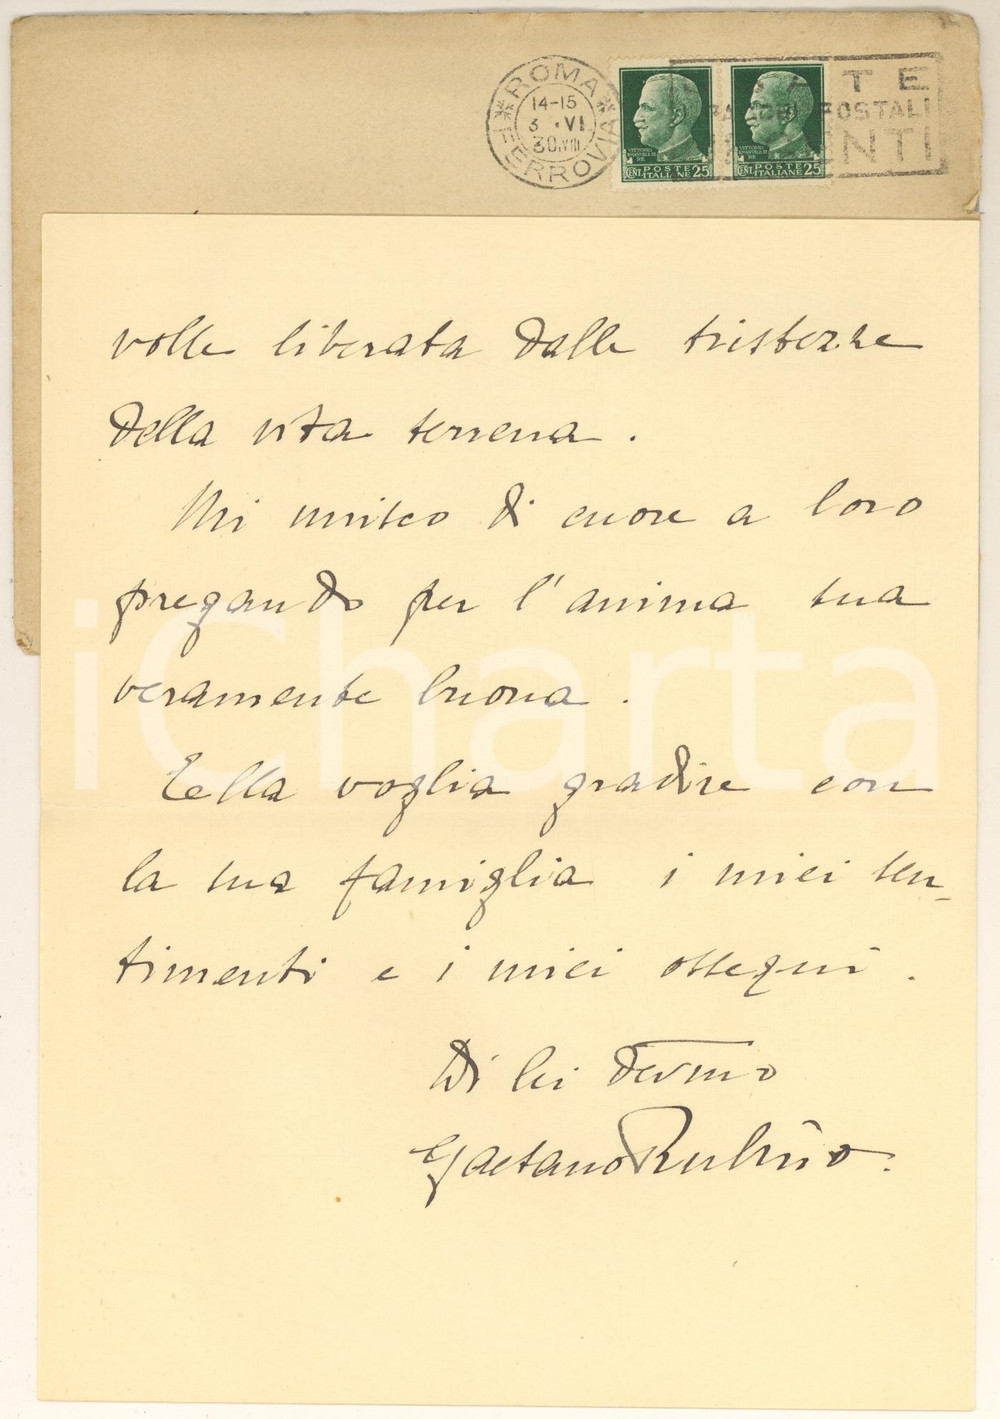 ROMA
FERROVIA
14-15
3 · VI
30.VIII
VITTORIO
EMANUELE III
RE
CENT. POSTE ITALIANE 25
VITTORIO
EMANUELE III
RE
CENT. POSTE ITALIANE 25
POSTALI
volle liberata dalle tristezze
della vita terrena.
Mi unisco di cuore a loro
pregando per l'anima sua
veramente buona.
Ella voglia gradire con
la sua famiglia i miei sen-
timenti e i miei ossequi.
Di lei devmo
Gaetano Rubino.
iCharta